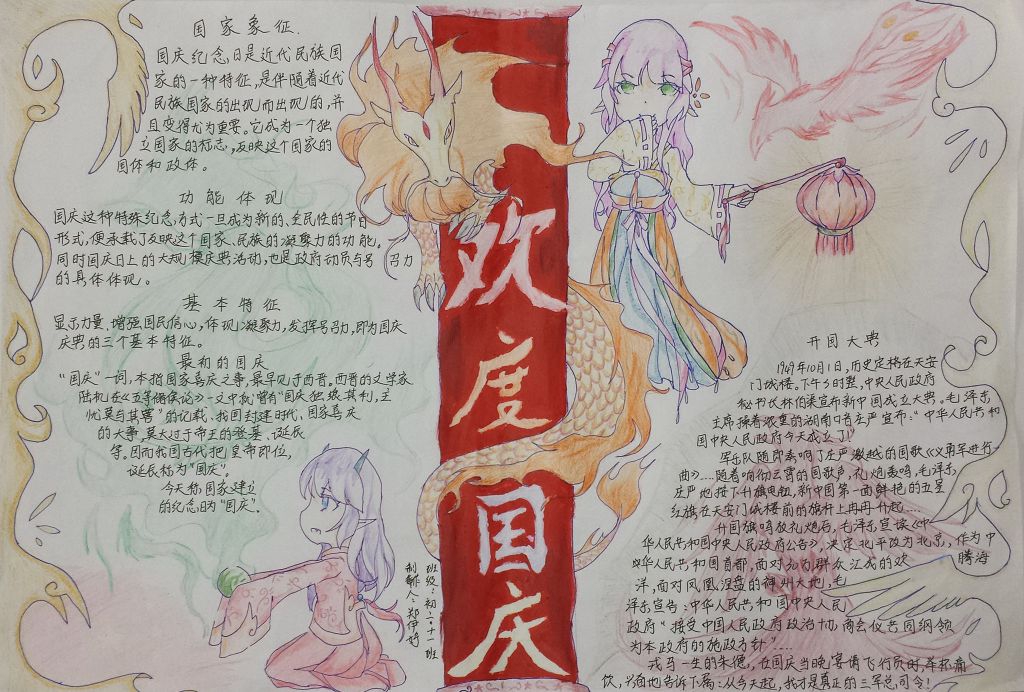 国家象征.
国庆纪念日是近代民族国
家的一种特征,是伴随着近代
民族国家的出现而出现的,并
且变得尤为重要。它成为一个独
立国家的标志,反映这个国家的
国体和政体。
功能体现
国庆这种特殊纪念方式一旦成为新的、全民性的节日
形式,便承载了反映这个国家、民族的凝聚力的功能。
同时国庆日上的大规模庆典活动,也是政府动员与号召力
的具体体现。
基本特征
显示力量、增强国民信心,体现凝聚力,发挥号召力,即为国庆
庆典的三个基本特征。
最初的国庆
"国庆"一词,本指国家喜庆之事,最早见于西晋。西晋的文学家
陆机在《五等诸侯论》一文中就曾有"国庆独飨其利,主
忧莫与其害"的记载、我国封建时代、国家喜庆
的大事,莫大过于帝王的登基、诞辰
等。因而我国古代把皇帝即位,
诞辰称为"国庆"。
今天称国家建立
的纪念日为"国庆"。
欢度国庆
班级:初二·十一班
制作人:郑伊婷
开国大典
1949年10月1日,历史定格在天安
门城楼。下午3时整,中央人民政府
秘书长林伯渠宣布新中国成立大典。毛泽东
主席操着浓重的湖南口音庄严宣布:"中华人民共和
国中央人民政府今天成立了!"
军乐队随即奏响了庄严激越的国歌《义勇军进行
曲》....随着响彻云霄的国歌声,礼炮轰鸣,毛泽东
庄严地按下升旗电钮,新中国第一面鲜艳的五星
红旗在天安门城楼前的旗杆上冉冉升起....
升国旗鸣放礼炮后,毛泽东宣读《中
华人民共和国中央人民政府公告》,决定北平改为北京,作为中
华人民共和国首都,面对
腾海
洋,面对凤凰涅盘的神州大地,毛
泽东宣告:中华人民共和国中央人民
政府"接受中国人民政府政治协商会议共同纲领
为本政府的施政方针".....
戎马一生的朱德,在国庆当晚宴请飞行员时,举杯痛
饮,兴奋地告诉下属:从今天起,我才是真正的三军总司令!